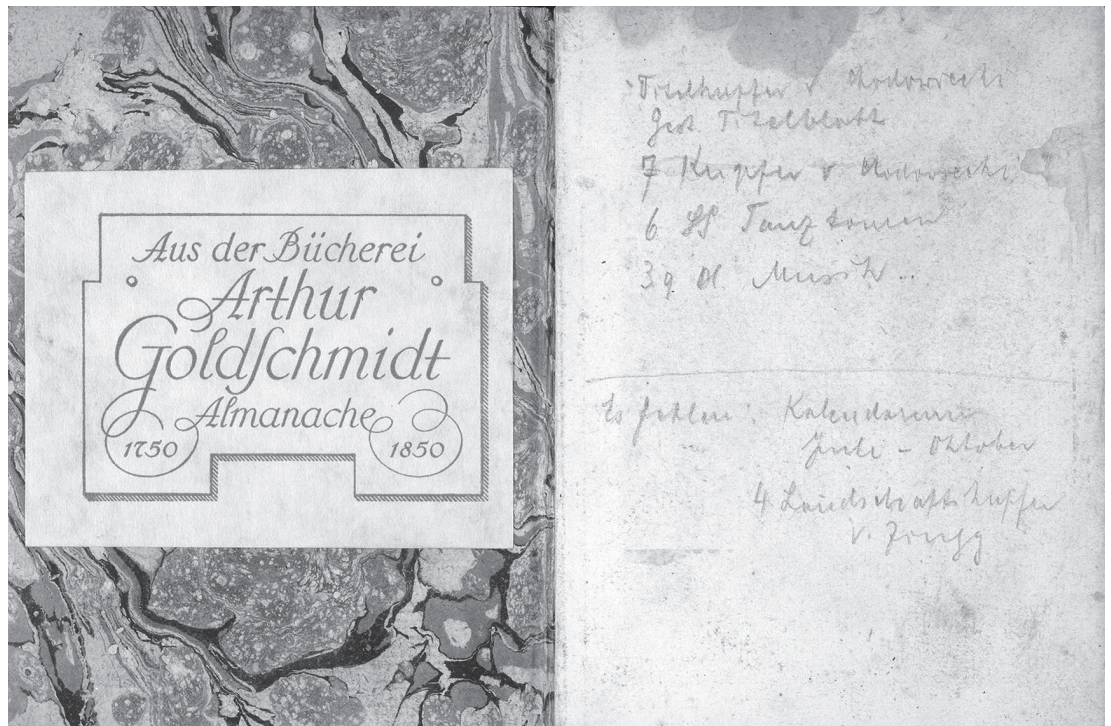 Aus der Bücherei
Arthur
Goldſchmidt
Almanache
1750 1850
Titelkupfer v Chodowiecki
Gest. Titelblatt
7 Kupfer v Chodowiecki
6 Tanztouren
3 Musik
Es fehlen: Kalendarium
Juli – Oktober
4 Landschaftskupfer
v. Zingg